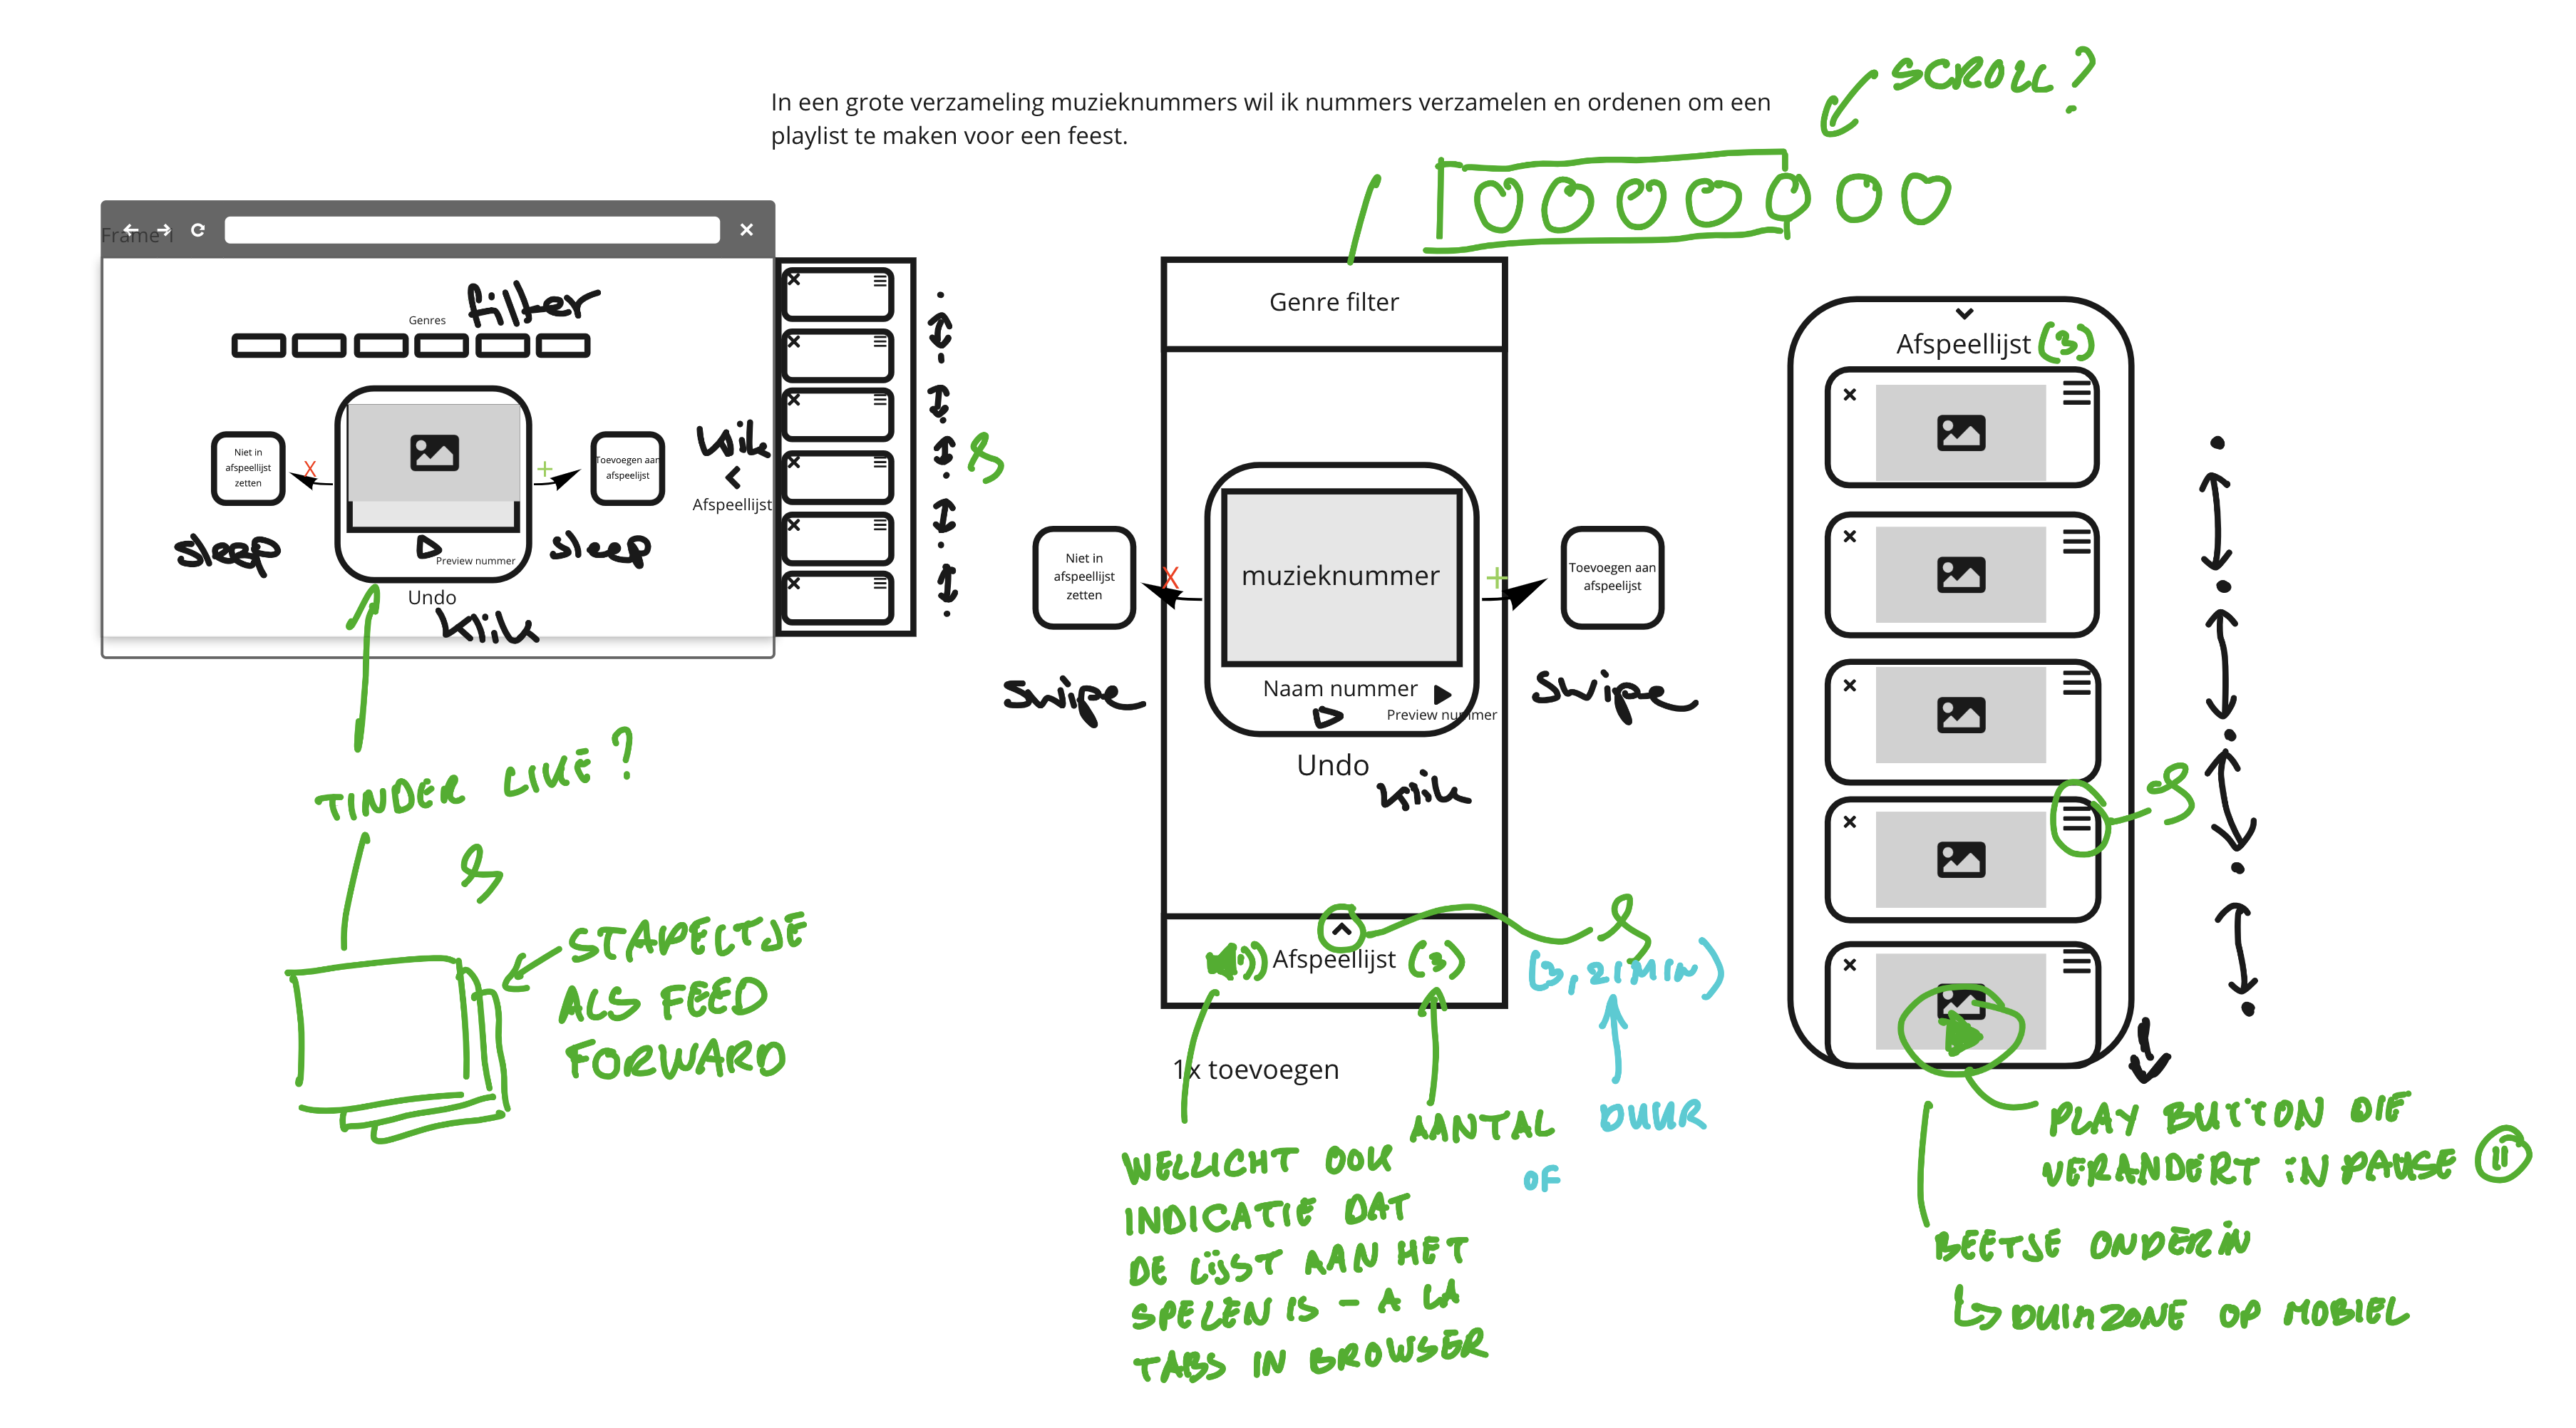 In een grote verzameling muzieknummers wil ik nummers verzamelen en ordenen om een
playlist te maken voor een feest.
SCROLL?
Frame 1
Genres
filter
Niet in
afspeellijst
zetten
X
+
Toevoegen aan
afspeelijst
sleep
sleep
Preview nummer
Undo
klik
klik
Afspeellijst
TINDER LIKE?
STAPELTJE
ALS FEED
FORWARD
Genre filter
Niet in
afspeellijst
zetten
X
muzieknummer
+
Toevoegen aan
afspeelijst
swipe
swipe
Naam nummer
Preview nummer
Undo
klik
Afspeellijst (3)
(3, 21 MIN)
1x toevoegen
AANTAL
OF
DUUR
WELLICHT OOK
INDICATIE DAT
DE LIJST AAN HET
SPELEN IS - A LA
TABS IN BROWSER
Afspeellijst (3)
PLAY BUTTON DIE
VERANDERT IN PAUSE
BEETJE ONDERIN
DUIMZONE OP MOBIEL